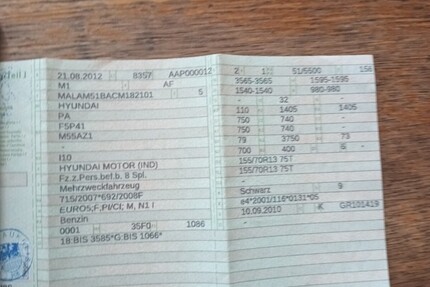 21.08.2012 - 8357 AAP000012
M1 AF
MALAM51BACM182101 - 5
HYUNDAI
PA
F5P41
M55AZ1
-
I10
HYUNDAI MOTOR (IND)
Fz.z.Pers.bef.b. 8 Spl.
Mehrzweckfahrzeug
715/2007*692/2008F
EURO5;F,PI/CI; M, N1 I
Benzin
0001 35F0 1086
18:BIS 3585*G:BIS 1066*
51/5500 156
3565-3565 1595-1595
1540-1540 980-980
- 32 -
110 1405 1405
750 740 -
750 740 -
79 3750 73
700 400 -
155/70R13 75T
155/70R13 75T
-
Schwarz 9
e4*2001/116*0131*05
10.09.2010 K GR101419
-